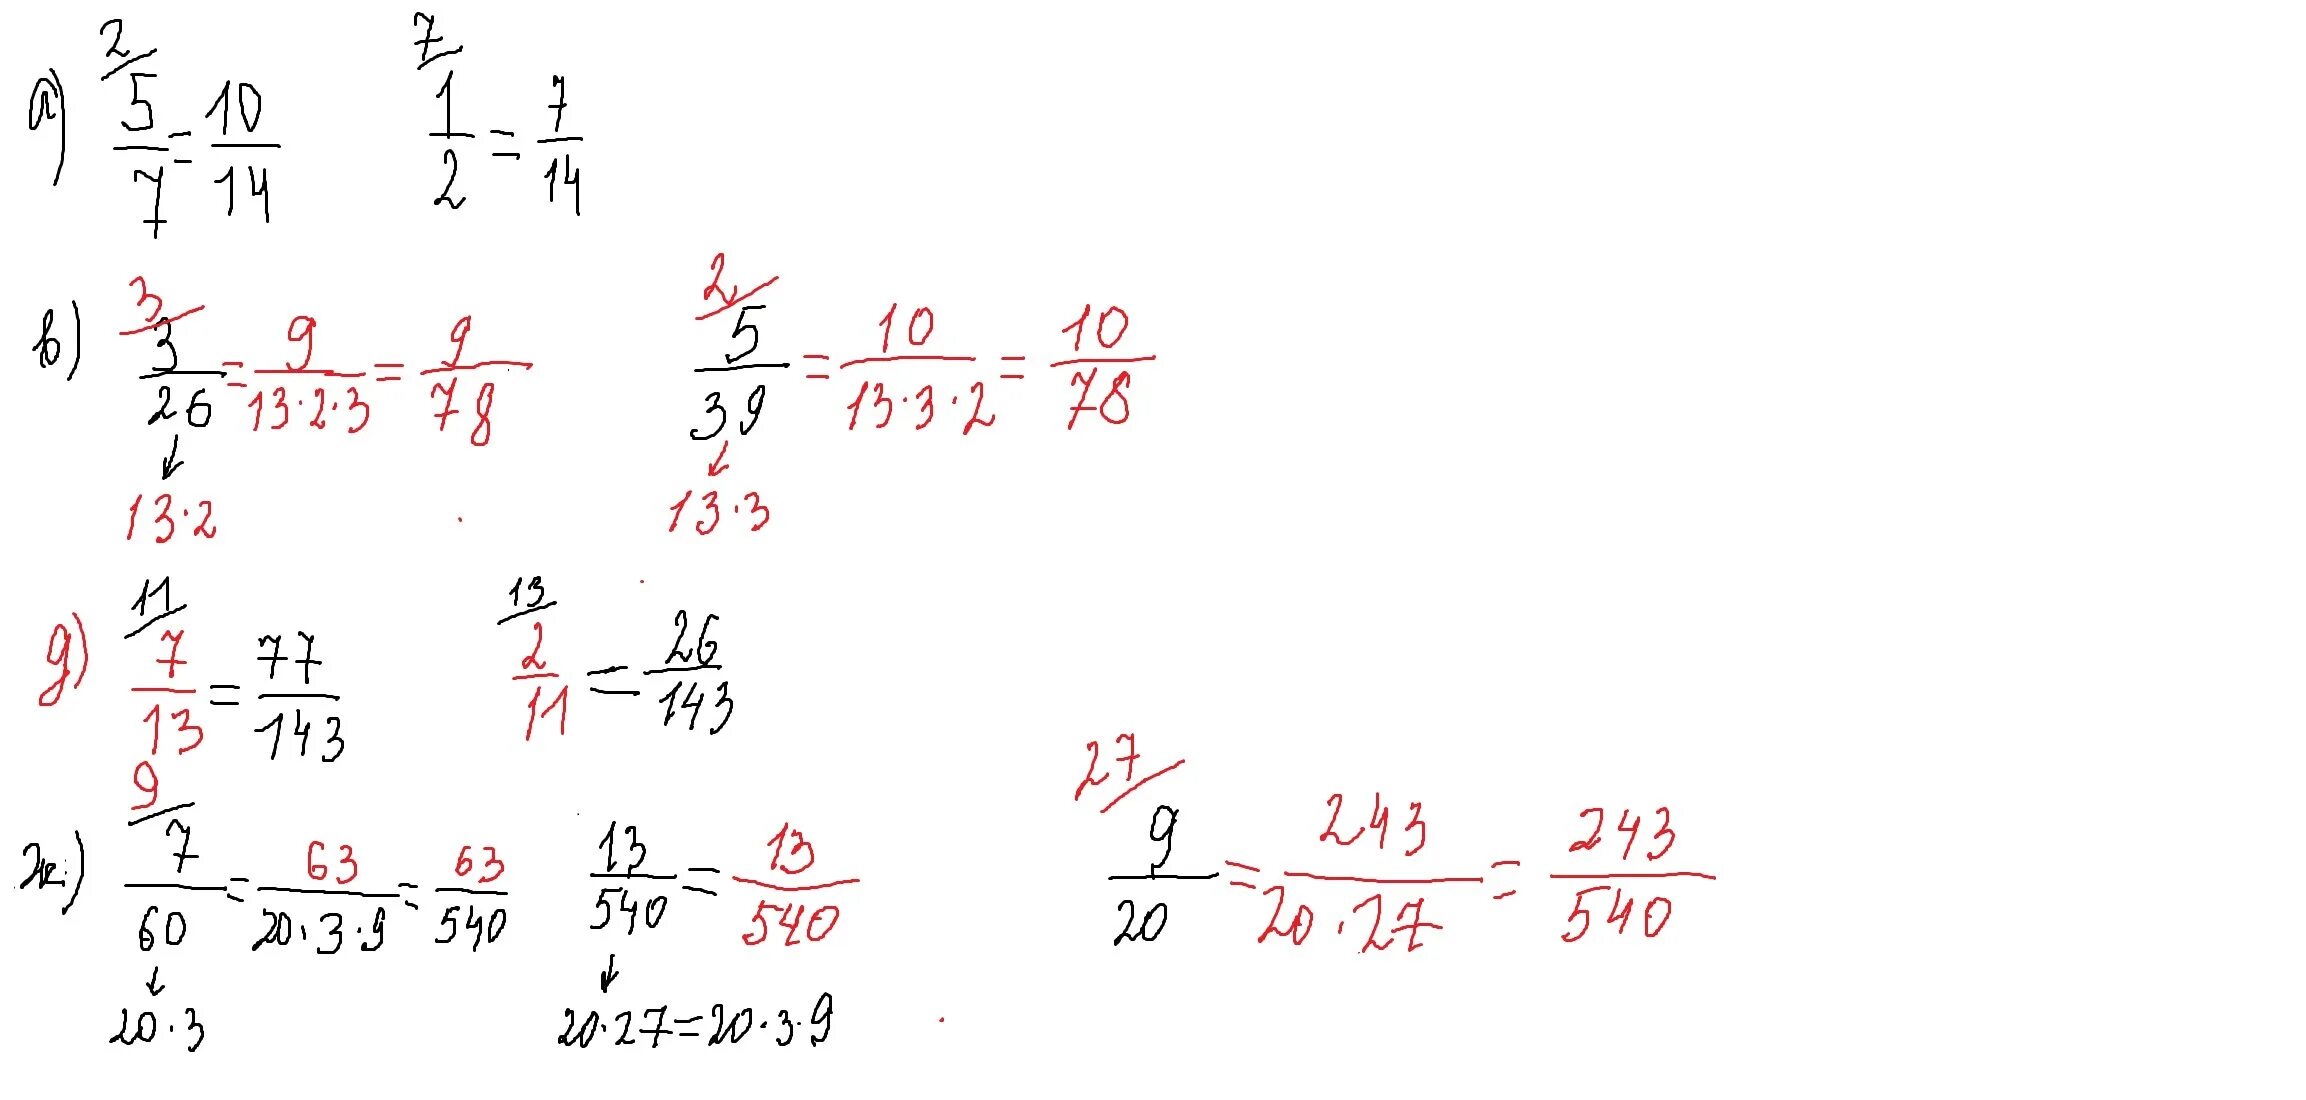 а) ²/ 5/7 = 10/14   ⁷/ 1/2 = 7/14
в) ³/ 3/26 = 9/(13·2·3) = 9/78   ²/ 5/39 = 10/(13·3·2) = 10/78
↓ 13·2   ↓ 13·3
д) ¹¹/ 7/13 = 77/143   ¹³/ 2/11 = 26/143
ж) ⁹/ 7/60 = 63/(20·3·9) = 63/540   13/540 = 13/540   ²⁷/ 9/20 = 243/(20·27) = 243/540
↓ 20·3   ↓ 20·27=20·3·9